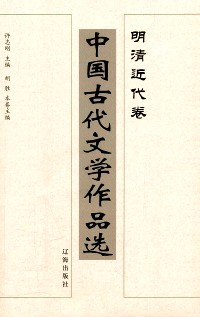 明清近代卷
中国古代文学作品选
许志刚 主编 胡胜 本卷主编
辽海出版社